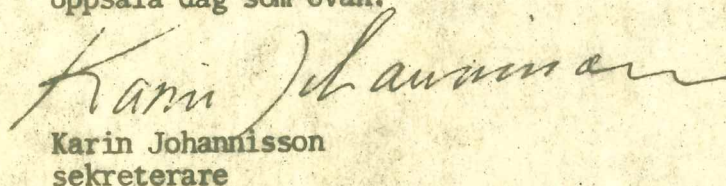 Uppsala dag som ovan.
Karin Johannisson
Karin Johannisson
sekreterare